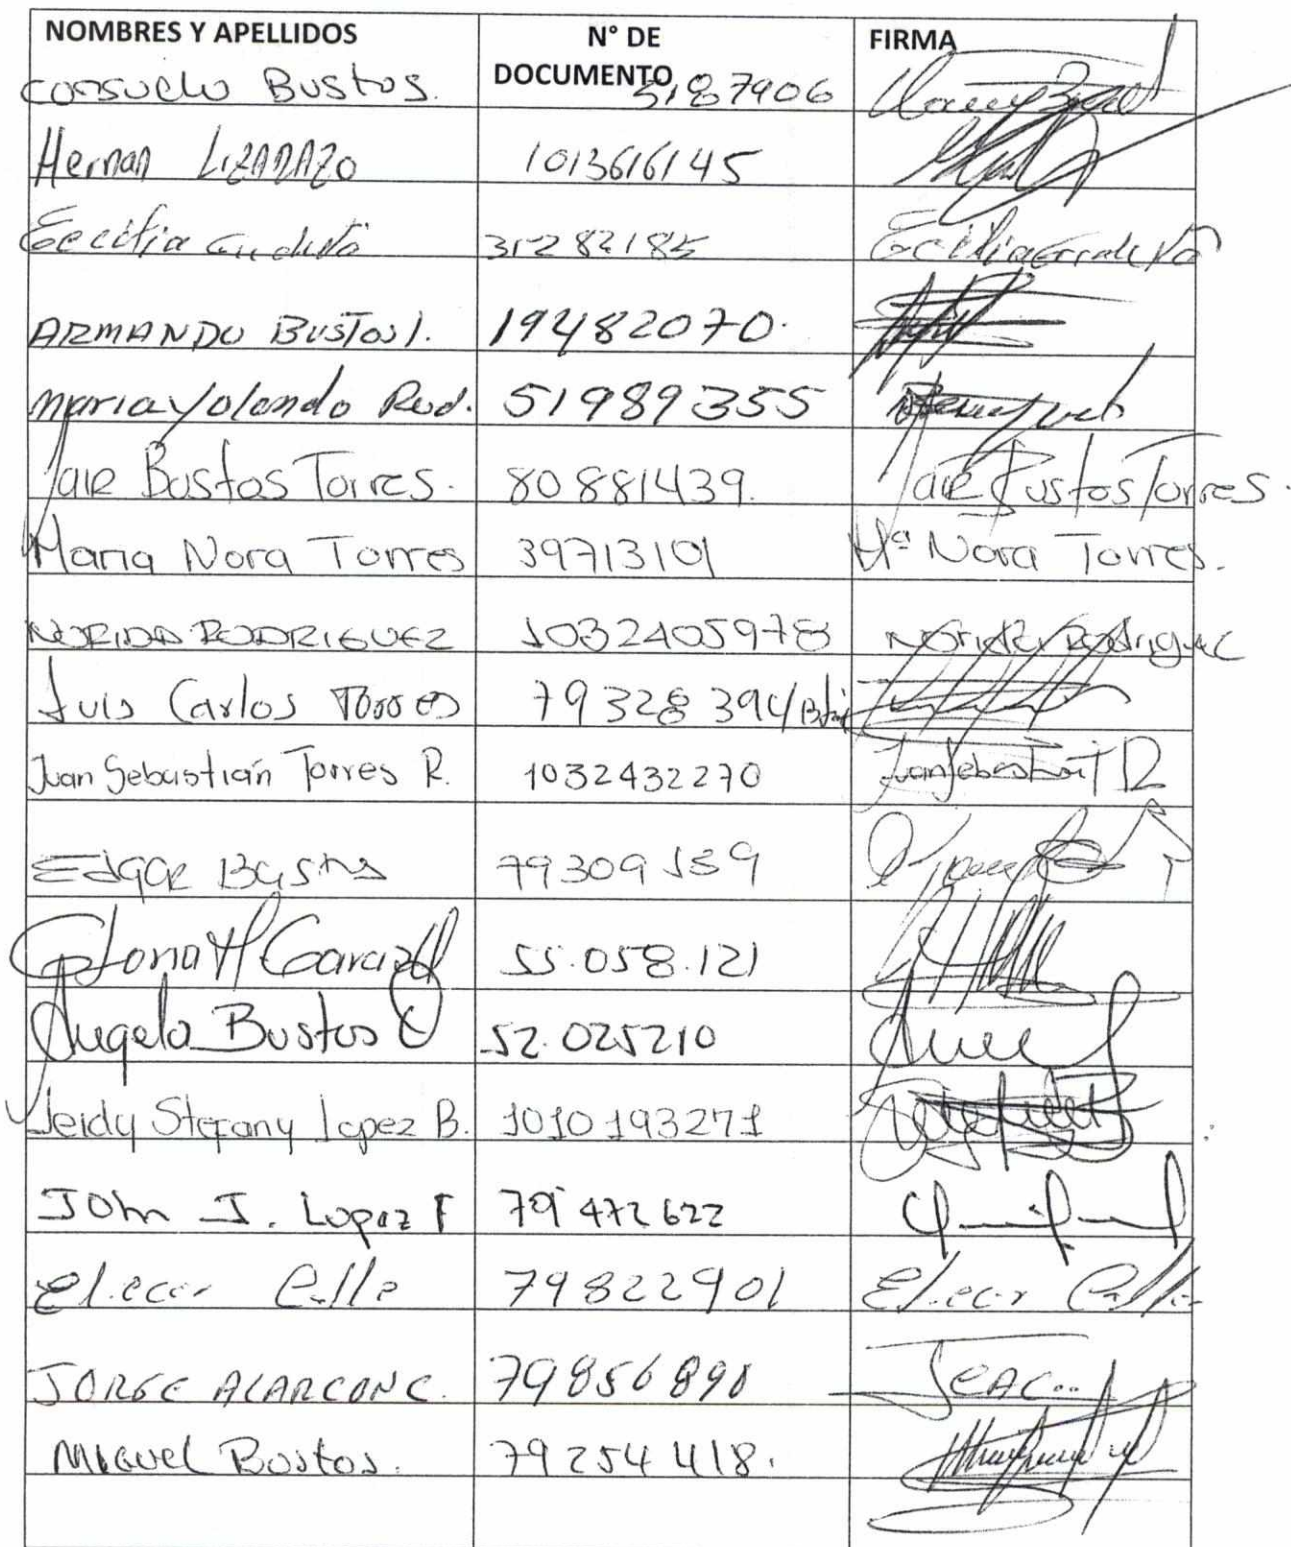 NOMBRES Y APELLIDOS N° DE DOCUMENTO FIRMA
Consuelo Bustos. 5187906
Hernan LIZARAZO 1013616145
Cecilia 
ARMANDO BUSTOS 19482070.
maria Yolanda Rod. 51989355
Jair Bustos Torres. 80881439. Jair Bustos Torres.
Maria Nora Torres 39713101 Mª Nora Torres.
NORIDA RODRIGUEZ 1032405978 Norida Rodriguez
Luis Carlos Torres 79328394
Juan Sebastián Torres R. 1032432270 Juan Sebastian T R
Edgar Bustos 79309159
Gloria H Garcia 55.058.121
Angela Bustos 52.025210
Leidy Stefany Lopez B. 1010193271
John J. Lopez F 79472622
Eliecer Calle 79822901 Eliecer Calle
JORGE ALARCON C. 79856890 JEAC
Miguel Bustos. 79254418.